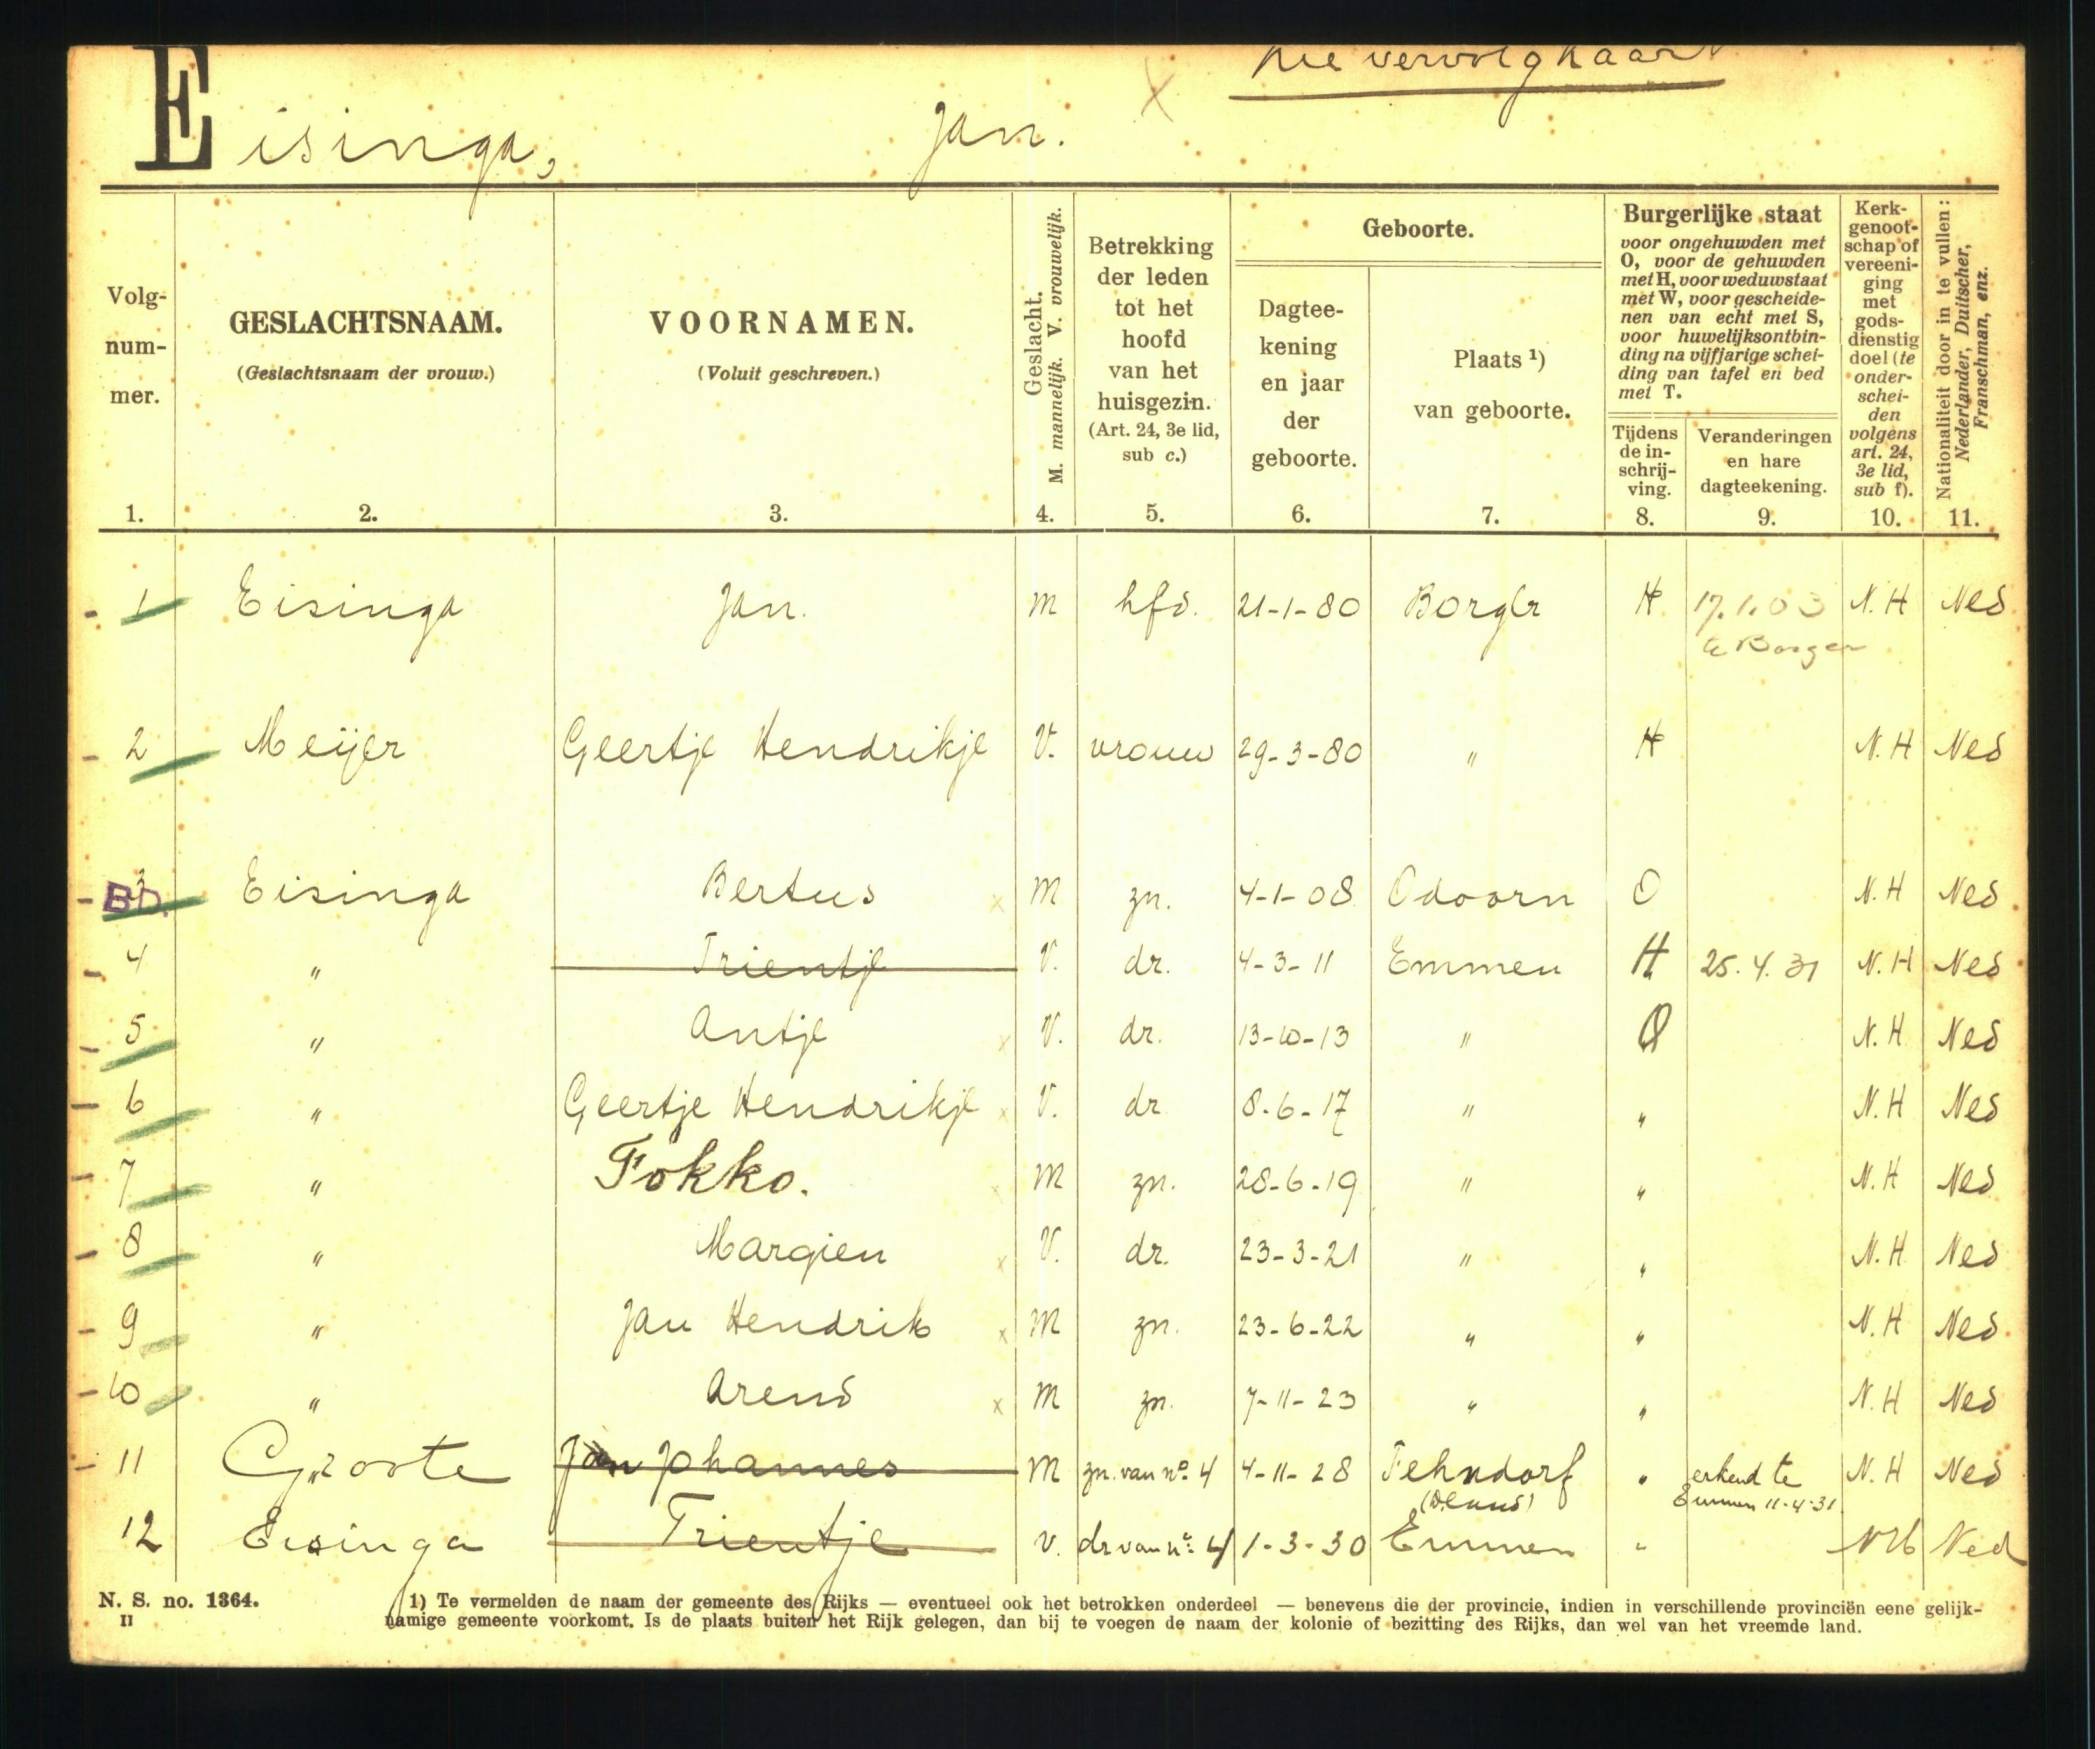 Zie vervolgkaart
Eisinga, Jan.
Volg-
num-
mer.
1.
GESLACHTSNAAM.
(Geslachtsnaam der vrouw.)
2.
VOORNAMEN.
(Voluit geschreven.)
3.
Geslacht.
M. mannelijk. V. vrouwelijk.
4.
Betrekking
der leden
tot het
hoofd
van het
huisgezin.
(Art. 24, 3e lid,
sub c.)
5.
Geboorte.
Dagtee-
kening
en jaar
der
geboorte.
6.
Plaats ¹)
van geboorte.
7.
Burgerlijke staat
voor ongehuwden met
O, voor de gehuwden
met H, voor weduwstaat
met W, voor gescheide-
nen van echt met S,
voor huwelijksontbin-
ding na vijfjarige schei-
ding van tafel en bed
met T.
Tijdens
de in-
schrij-
ving.
8.
Veranderingen
en hare
dagteekening.
9.
Kerk-
genoot-
schap of
vereeni-
ging
met
gods-
dienstig
doel (te
onder-
schei-
den
volgens
art. 24,
3e lid,
sub f).
10.
Nationaliteit door in te vullen:
Nederlander, Duitscher,
Franschman, enz.
11.
1 Eisinga Jan. M hfd. 21-1-80 Borger H 17.1.03 N.H Ned
te Borger
2 Meijer Geertje Hendrikje V. vrouw 29-3-80 " H N.H Ned
3 B.D. Eisinga Bertus M zn. 4-1-08 Odoorn O N.H Ned
4 " Trientje V. dr. 4-3-11 Emmen H 25.4.31 N.H Ned
5 " Antje V. dr. 13-10-13 " O N.H Ned
6 " Geertje Hendrikje V. dr 8-6-17 " " N.H Ned
7 " Fokko. M zn. 28-6-19 " " N.H Ned
8 " Margien V. dr. 23-3-21 " " N.H Ned
9 " Jan Hendrik M zn. 23-6-22 " " N.H Ned
10 " Arend M zn. 7-11-23 " " N.H Ned
11 Groote Jan Johannes M zn. van no 4 4-11-28 Fehndorf " erkend te N.H Ned
Emmen 11-4-31
12 Eisinga Trientje V. dr van no 4 1-3-30 Emmen " NH Ned
N. S. no. 1364.
II
1) Te vermelden de naam der gemeente des Rijks — eventueel ook het betrokken onderdeel — benevens die der provincie, indien in verschillende provinciën eene gelijk-
namige gemeente voorkomt. Is de plaats buiten het Rijk gelegen, dan bij te voegen de naam der kolonie of bezitting des Rijks, dan wel van het vreemde land.